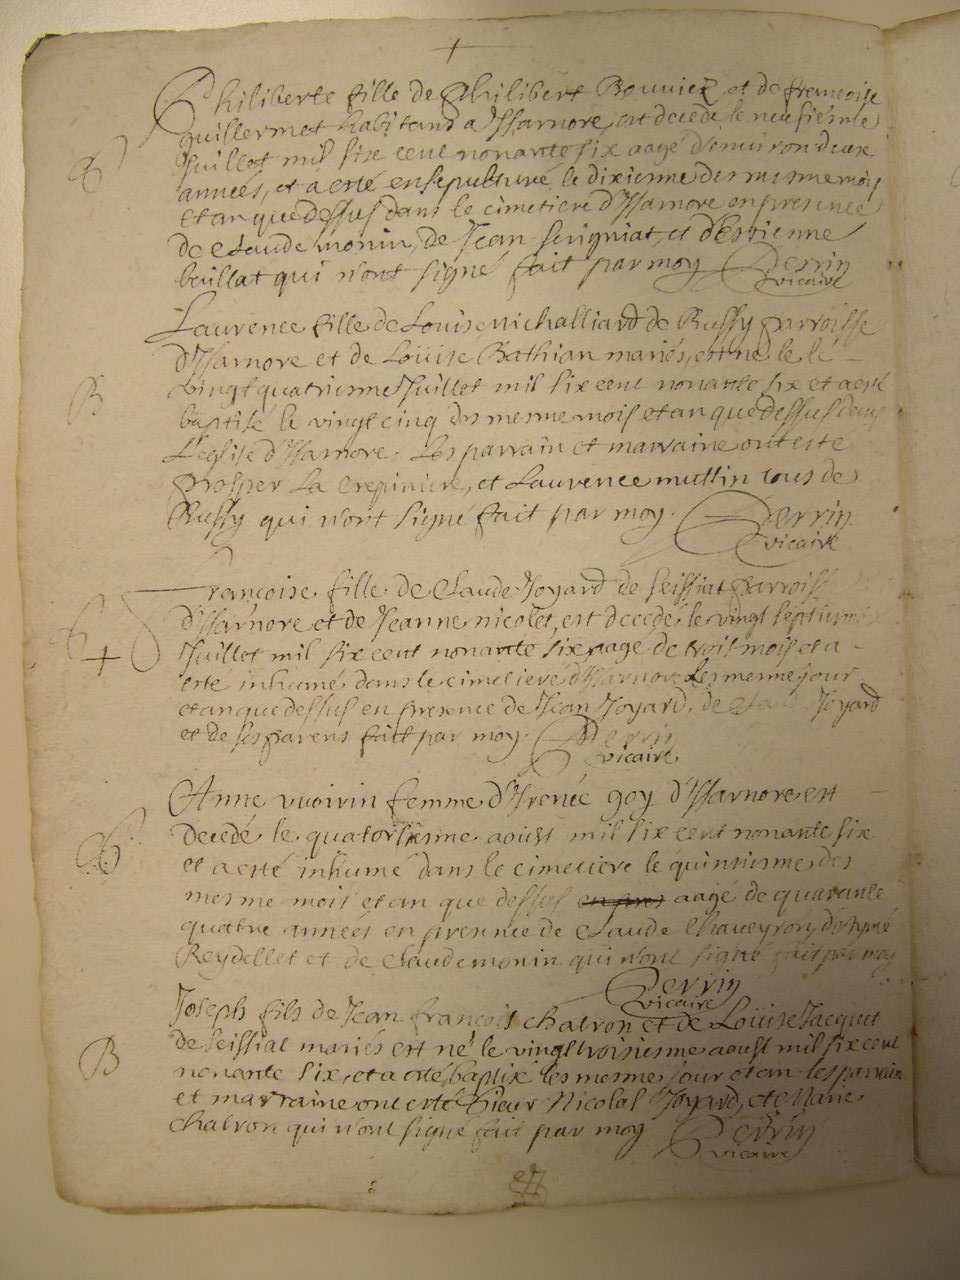 Philiberte fille de Philibert Bouvier, et de francoise
guillermet habitans a Jsarnore, est decede le neufiesme
Juillet mil six cent nonante six aagé denuiron deux
années, et a esté ensepulturé le dixienne des mesme mois
et an que dessus dans le cimetiere d'Jsarnore en presence
de Claude monin, de Jean seigniat, et d'Estienne
beillat qui n'ont signé fait par moy Perrin
vicaire
B
Laurence fille de Louis michalliard de Bussy parroisse
d'Jsarnore et de Loüise Bathian mariés, est né le le
vingt quatriesme Juillet mil six cent nonante six et a esté
baptisé le vingt cinq des mesme mois et an que dessus dans
L'eglise d'Jsarnore. Les parrain et marraine ont esté
prosper La crepiniere, et Laurence muttin tous de
Bussy qui n'ont signé fait par moy. Perrin
vicaire
françoise fille de Claude Joyard de seissiat parroisse
d'Jsarnore et de Jeanne nicolet, est decedé le vingt septiesme
Juillet mil six cent nonante six aagé de trois mois et a
esté inhumé dans le cimetiere d'Jsarnore Les mesme jour
et an que dessus en presence de Jean Joyard, de Claude Joyard
et de ses parens fait par moy. Perrin
vicaire
Anne vuoirin femme d'Jrenée goy d'Jsarnore est
decedé le quatorsiesme aoust mil six cent nonante six
et a esté inhumé dans le cimetiere le quinsiesme des
mesme mois et an que dessus en pres aagé de quarante
quatre années en presence de Claude Chaveyron, d'Aymé
Reydellet et de Claude monin qui n'ont signé fait par moy
Perrin
vicaire
B
Joseph fils de Jean françois chatron et de Loüise Jacquet
de seissiat mariés est né le vingt troisiesme aoust mil six cent
nonante six, et a esté baptisé les mesme jour et an les parrain
et marraine ont esté Sieur Nicolas Joyard, et Marie
chatron qui n'ont signé fait par moy Perrin
vicaire